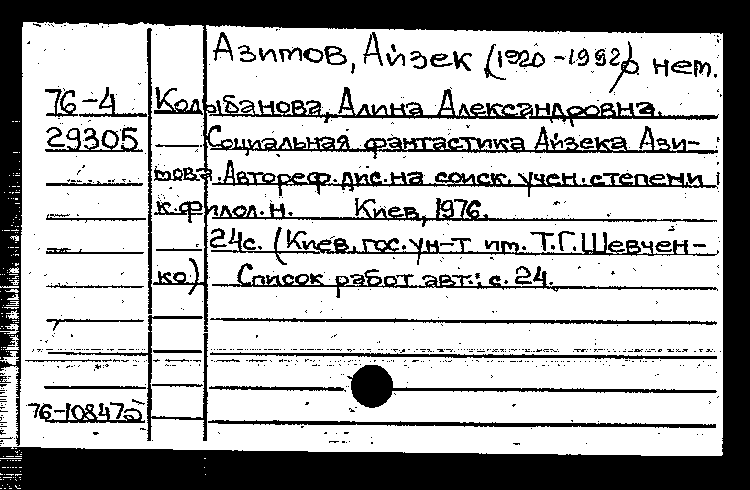 Азимов, Айзек (1920-1992) о нем.
76-4 Колыбанова, Алина Александровна.
29305 Социальная фантастика Айзека Ази-
мова. Автореф. дис. на соиск. учен. степени
к. филол. н. Киев, 1976.
24с. (Киев. гос. ун-т им. Т.Г. Шевчен-
ко) Список работ авт.: с. 24.
76-10847а